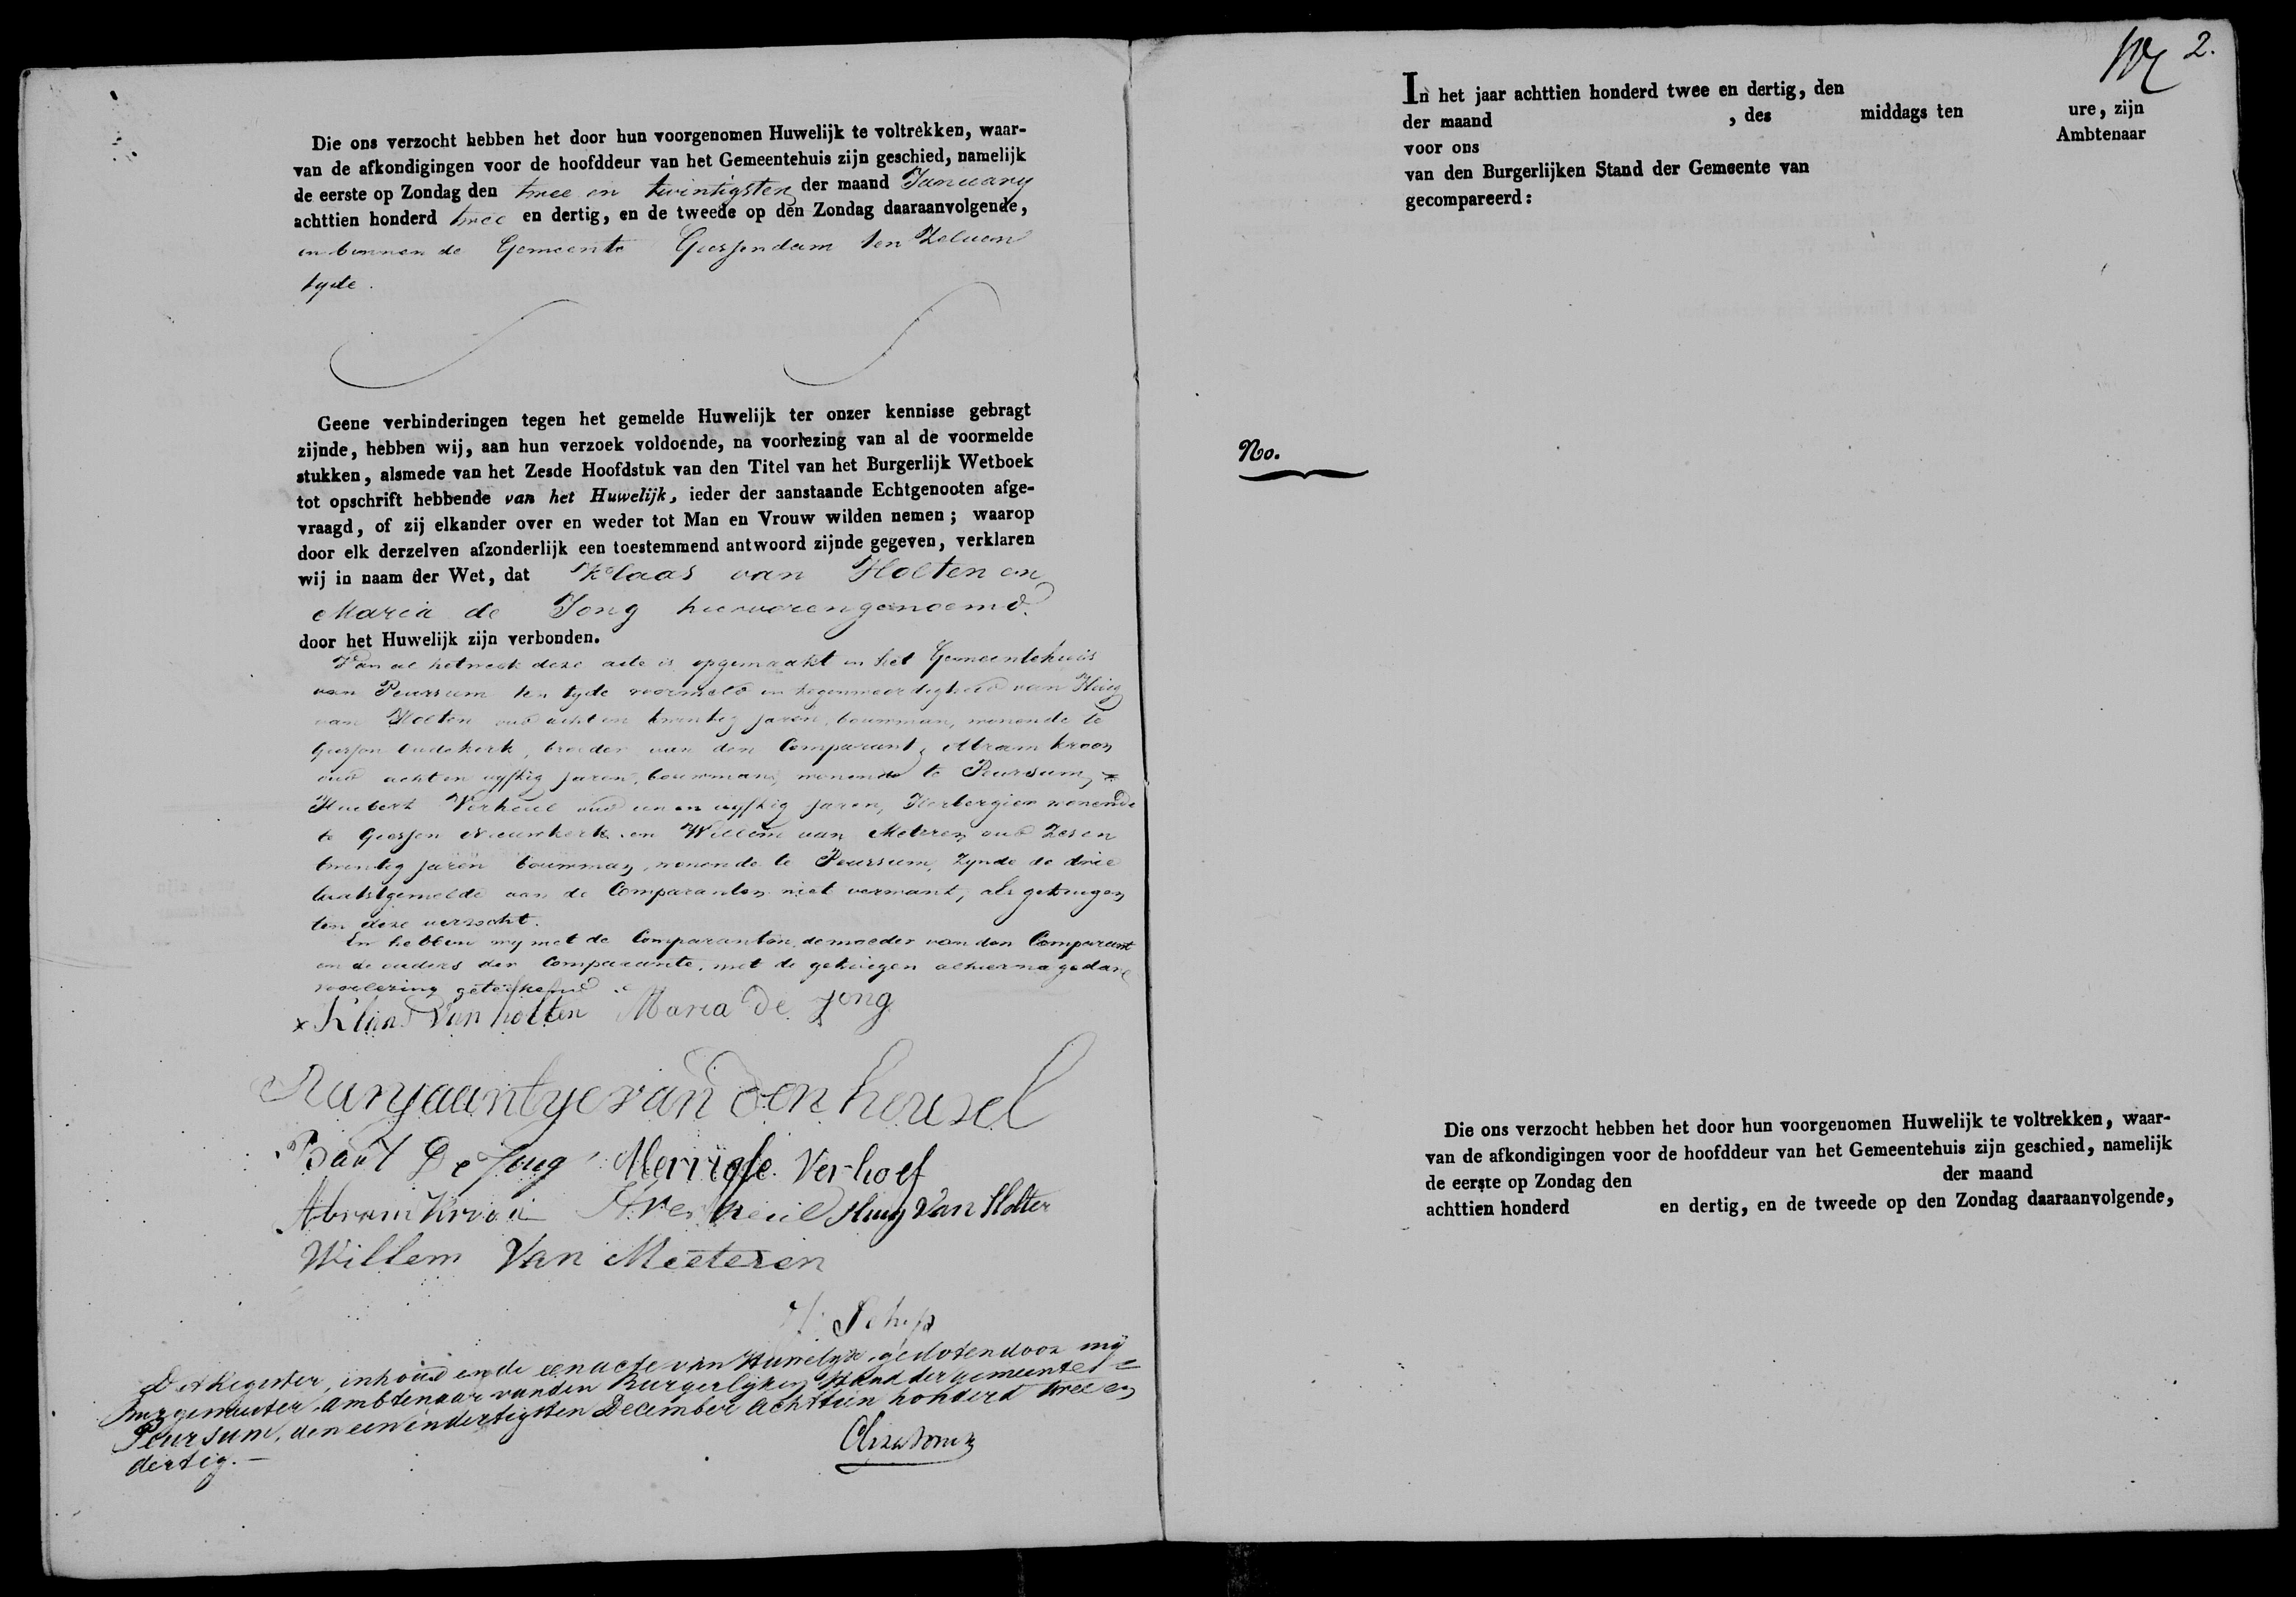 Die ons verzocht hebben het door hun voorgenomen Huwelijk te voltrekken, waar-
van de afkondigingen voor de hoofddeur van het Gemeentehuis zijn geschied, namelijk
de eerste op Zondag den twee en twintigsten der maand January
achttien honderd twee en dertig, en de tweede op den Zondag daaraanvolgende,
en binnen de Gemeente Giessendam ten Zelven
tyde.
Geene verhinderingen tegen het gemelde Huwelijk ter onzer kennisse gebragt
zijnde, hebben wij, aan hun verzoek voldoende, na voorlezing van al de voormelde
stukken, alsmede van het Zesde Hoofdstuk van den Titel van het Burgerlijk Wetboek
tot opschrift hebbende van het Huwelijk, ieder der aanstaande Echtgenooten afge-
vraagd, of zij elkander over en weder tot Man en Vrouw wilden nemen; waarop
door elk derzelven afzonderlijk een toestemmend antwoord zijnde gegeven, verklaren
wij in naam der Wet, dat Klaas van Holten en
Maria de Jong hiervorengenoemd.
door het Huwelijk zijn verbonden.
Van al hetwelk deze acte is opgemaakt in het Gemeentehuis
van Peursum ten tyde voormeld in tegenwoordigheid van Huig
van Holten oud acht en twintig jaren, bouwman, wonende te
Giessen Oudekerk, broeder van den Comparant, Abram Kroon
oud acht en vyftig jaren, bouwman, wonende te Peursum,
Huibert Verheul oud een en vyftig jaren, Herbergier wonende
te Giessen Nieuwkerk en Willem van Meteren oud Zes en
twintig jaren bouwman, wonende te Peursum, Zynde de drie
laatstgemelde aan de Comparanten niet vermant, als getuigen
ten deze verzocht.
En hebben wy met de Comparanten, de moeder van den Comparant
en de ouders der Comparante, met de getuigen alhierna gedane
voorlezing geteekend
x Klaas Van holten Maria de Jong
van den heuvel
Bart De Jong Merrigje Verhoef
Abram Kroon H Verheul Huig Van Holten
Willem Van Meeteren
Schep
Dit Register, inhoudende een acte van Huwelyk, gesloten door my
Burgemeester, ambtenaar van den Burgerlyken Stand der gemeente
Peursum, den een en dertigsten December achttien honderd twee en
dertig.—
2.
In het jaar achttien honderd twee en dertig, den
der maand , des middags ten ure, zijn
voor ons Ambtenaar
van den Burgerlijken Stand der Gemeente van
gecompareerd:
No.
Die ons verzocht hebben het door hun voorgenomen Huwelijk te voltrekken, waar-
van de afkondigingen voor de hoofddeur van het Gemeentehuis zijn geschied, namelijk
de eerste op Zondag den der maand
achttien honderd en dertig, en de tweede op den Zondag daaraanvolgende,